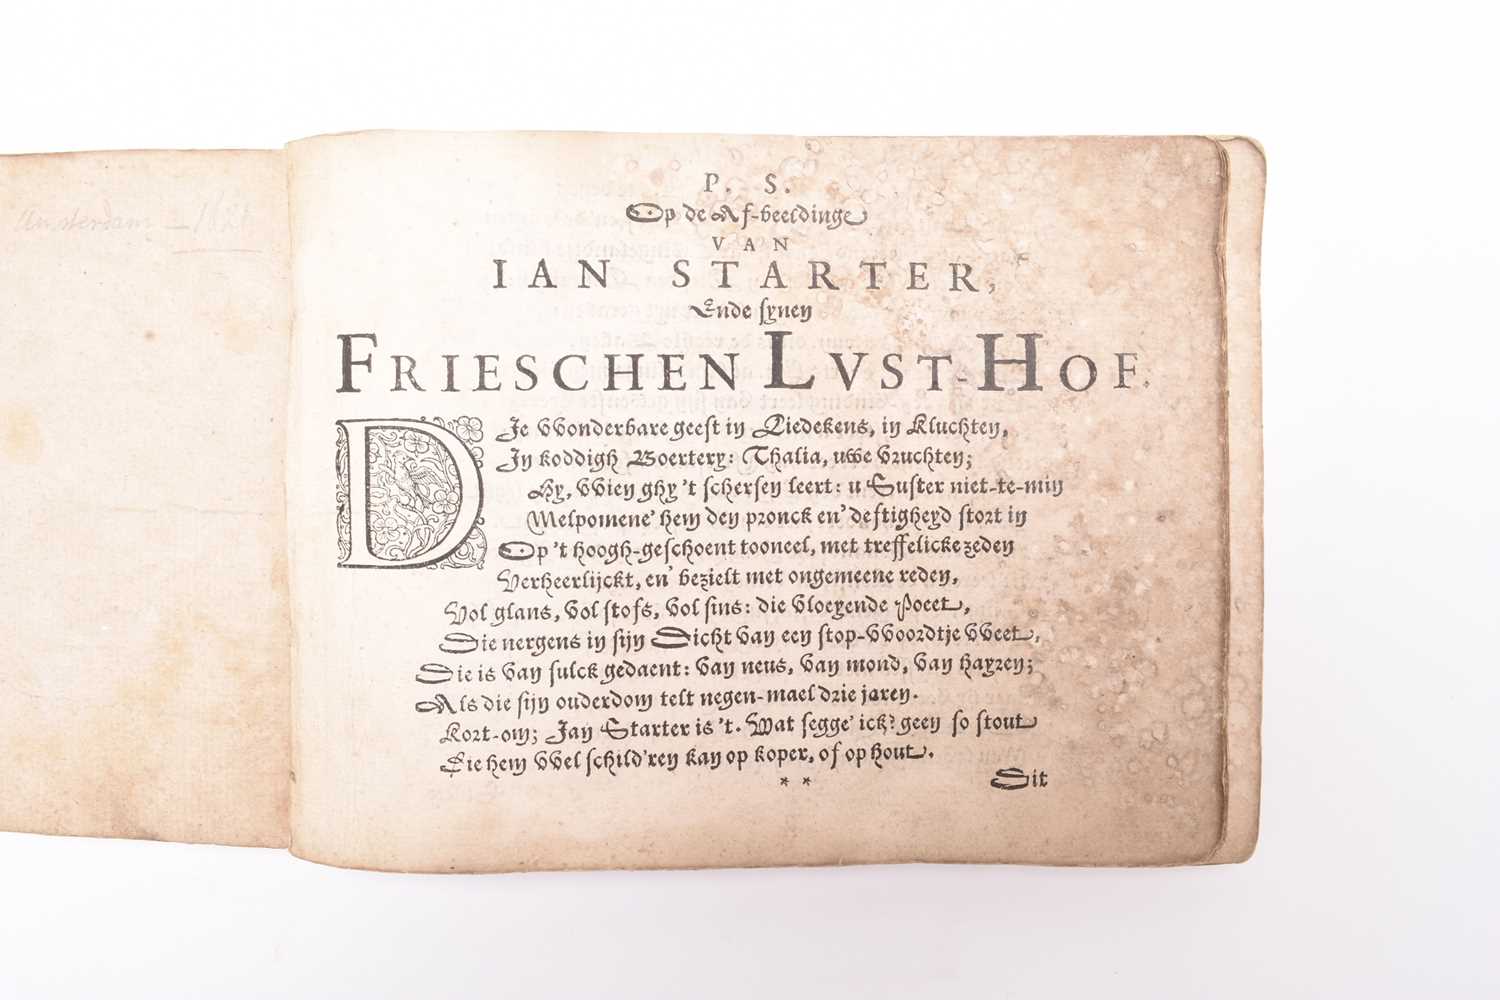 Amsterdam – 1621
P. S.
Op de Af-beeldinge
VAN
IAN STARTER,
Ende synen
FRIESCHEN LVST-HOF.
DJe VVonderbare geest in Liedekens, in Kluchten,
Jn koddigh Boertery: Thalia, uwe vruchten;
Hy, VVien ghy 't schersen leert: u Suster niet-te-min
Melpomene' hem den pronck en' deftigheyd stort in
Op 't hoogh-geschoent tooneel, met treffelicke zeden
Verheerlijckt, en' bezielt met ongemeene reden,
Vol glans, vol stofs, vol sins: die vloeyende Poeet,
Die nergens in sijn Dicht van een stop-VVoordtje VVeet,
Die is van sulck gedaent: van neus, van mond, van hayren;
Als die sijn ouderdom telt negen-mael drie jaren.
Kort-om; Jan Starter is 't. Wat segge' ick? geen so stout
Die hem VVel schild'ren kan op koper, of op hout.
* *
Dit